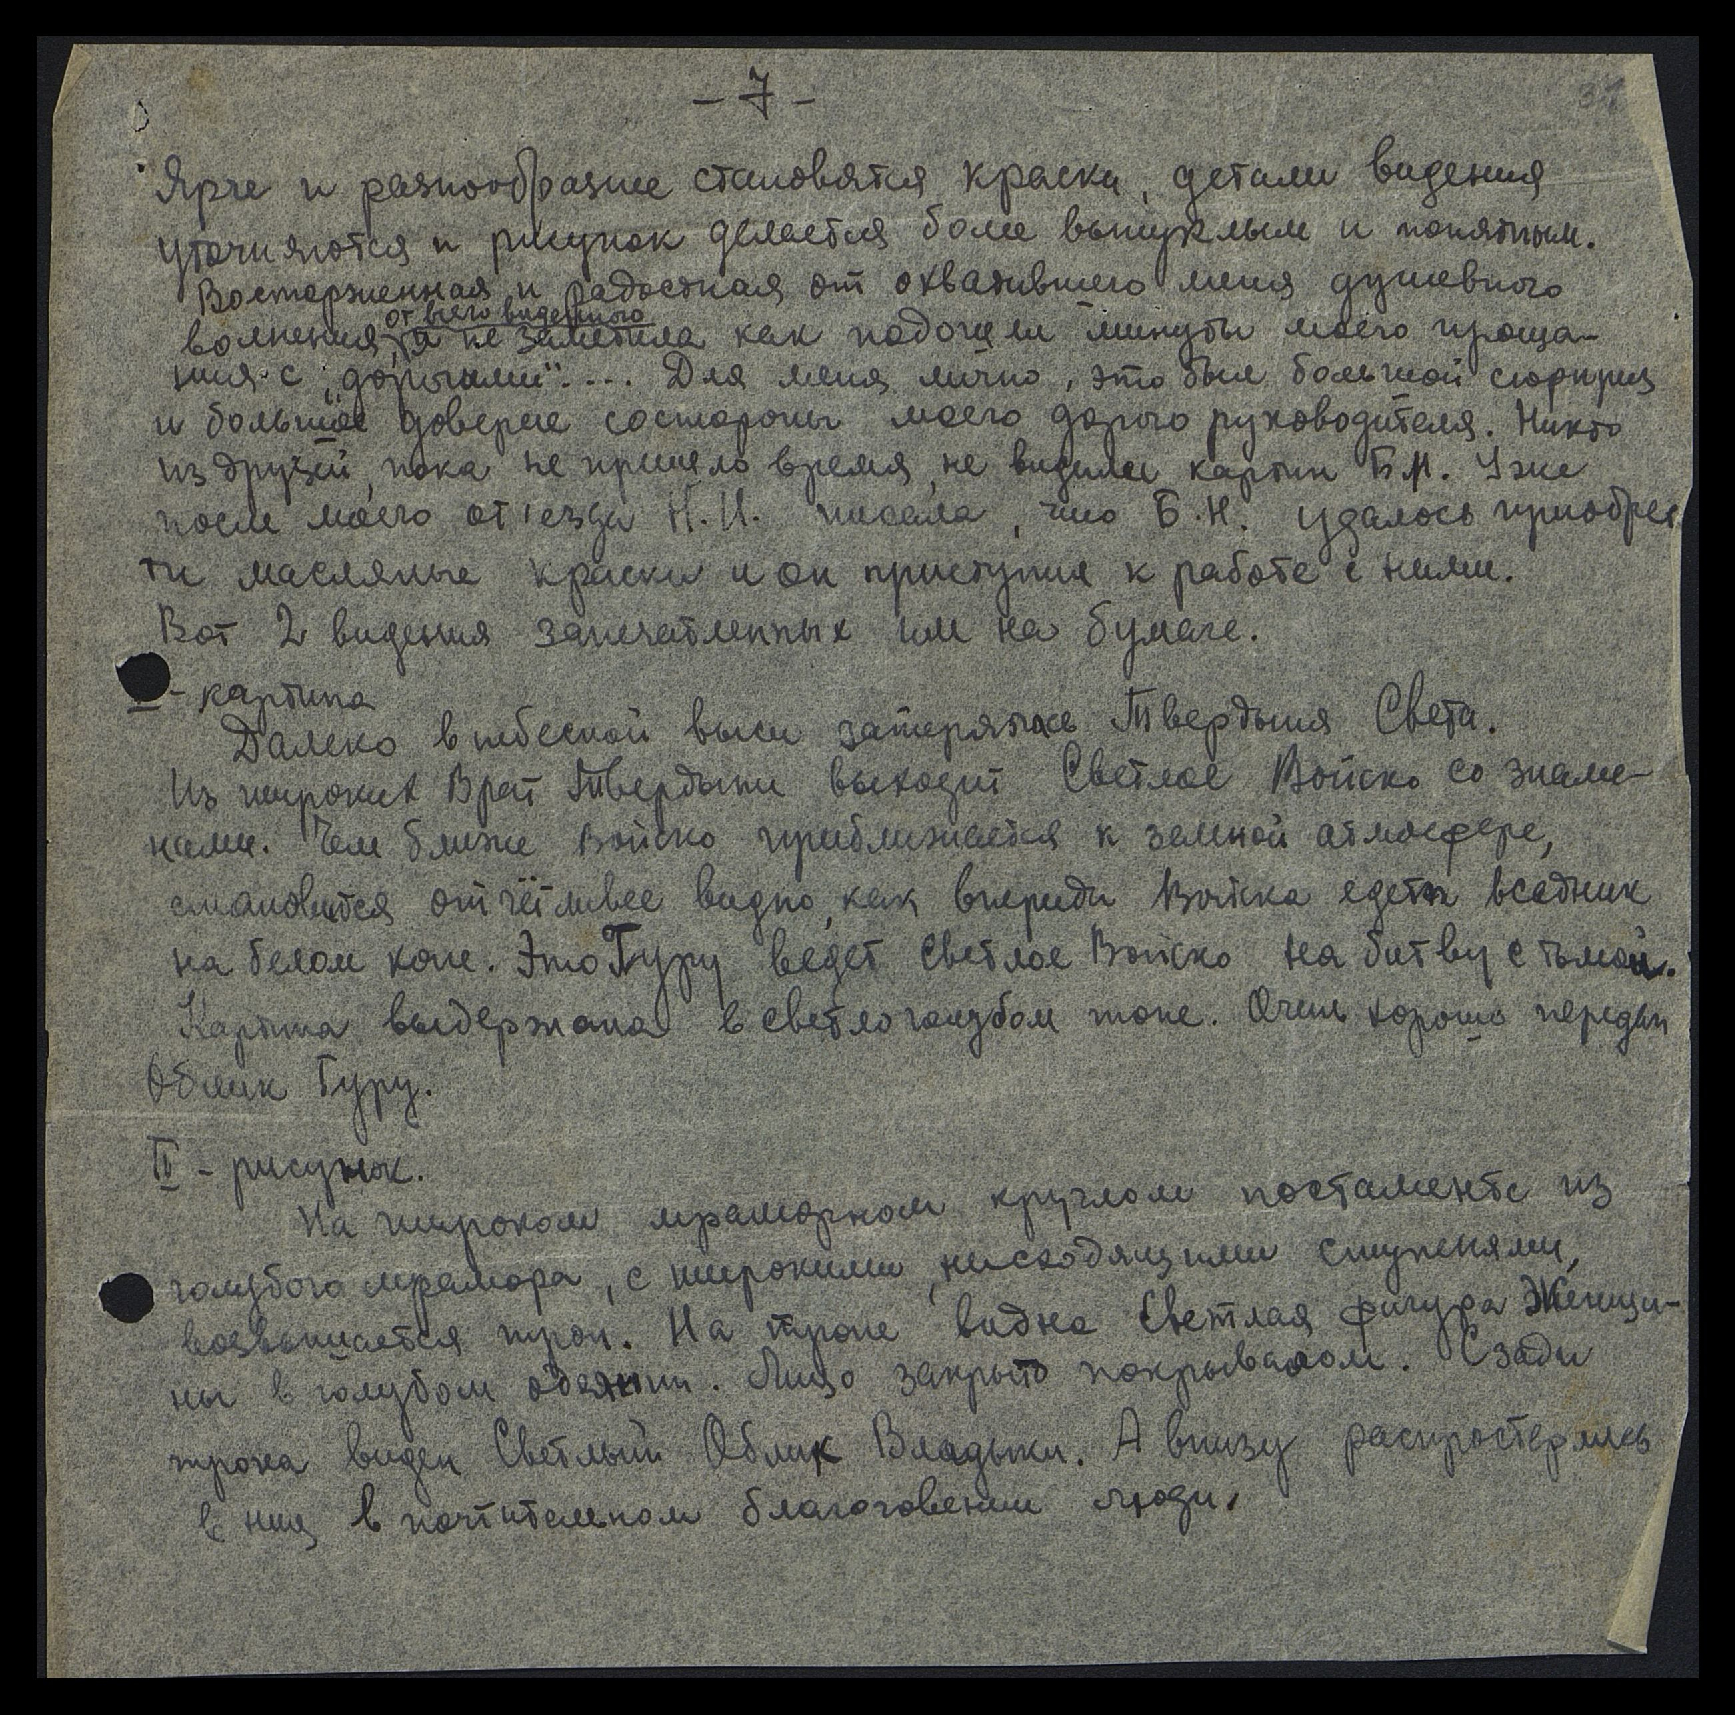 - 7 -
Ярче и разнообразнее становятся краски, детали видения
уточняются и рисунок делается более выпуклым и понятным.
Восторженная и радостная от охватившего меня душевного
от всего виденного
волнения, я не заметила как подошли минуты моего проща-
ния с „дорогими".... Для меня лично, это был большой сюрприз
и большое доверие состороны моего дорого руководителя. Никто
из друзей, пока не пришло время, не видели картин Б.Н. Уже
после моего от'езда Н.И. писала, что Б.Н. удалось приобрес
ти масляные краски и он приступил к работе с ними.
Вот 2 видения запечатленных им на бумаге.
I - картина
Далеко в небесной выси затерялась Твердыня Света.
Из широких Врат Твердыни выходит Светлое Войско со знаме-
нами. Чем ближе Войско приближается к земной атмосфере,
становится отчётливее видно, как впереди Войска едет всадник
на белом коне. Это Гуру ведет Светлое Войско на битву с тьмой.
Картина выдержана в светло голубом тоне. Очень хорошо передан
Облик Гуру.
II - рисунок.
На широком мраморном круглом постаменте из
голубого мрамора, с широкими, нисходящими ступенями,
возвышается трон. На троне видна Светлая фигура Женщи-
ны в голубом одеянии. Лицо закрыто покрывалом. Сзади
трона виден Светлый Облик Владыки. А внизу распростерлись
в ниц в почтительном благоговении люди.